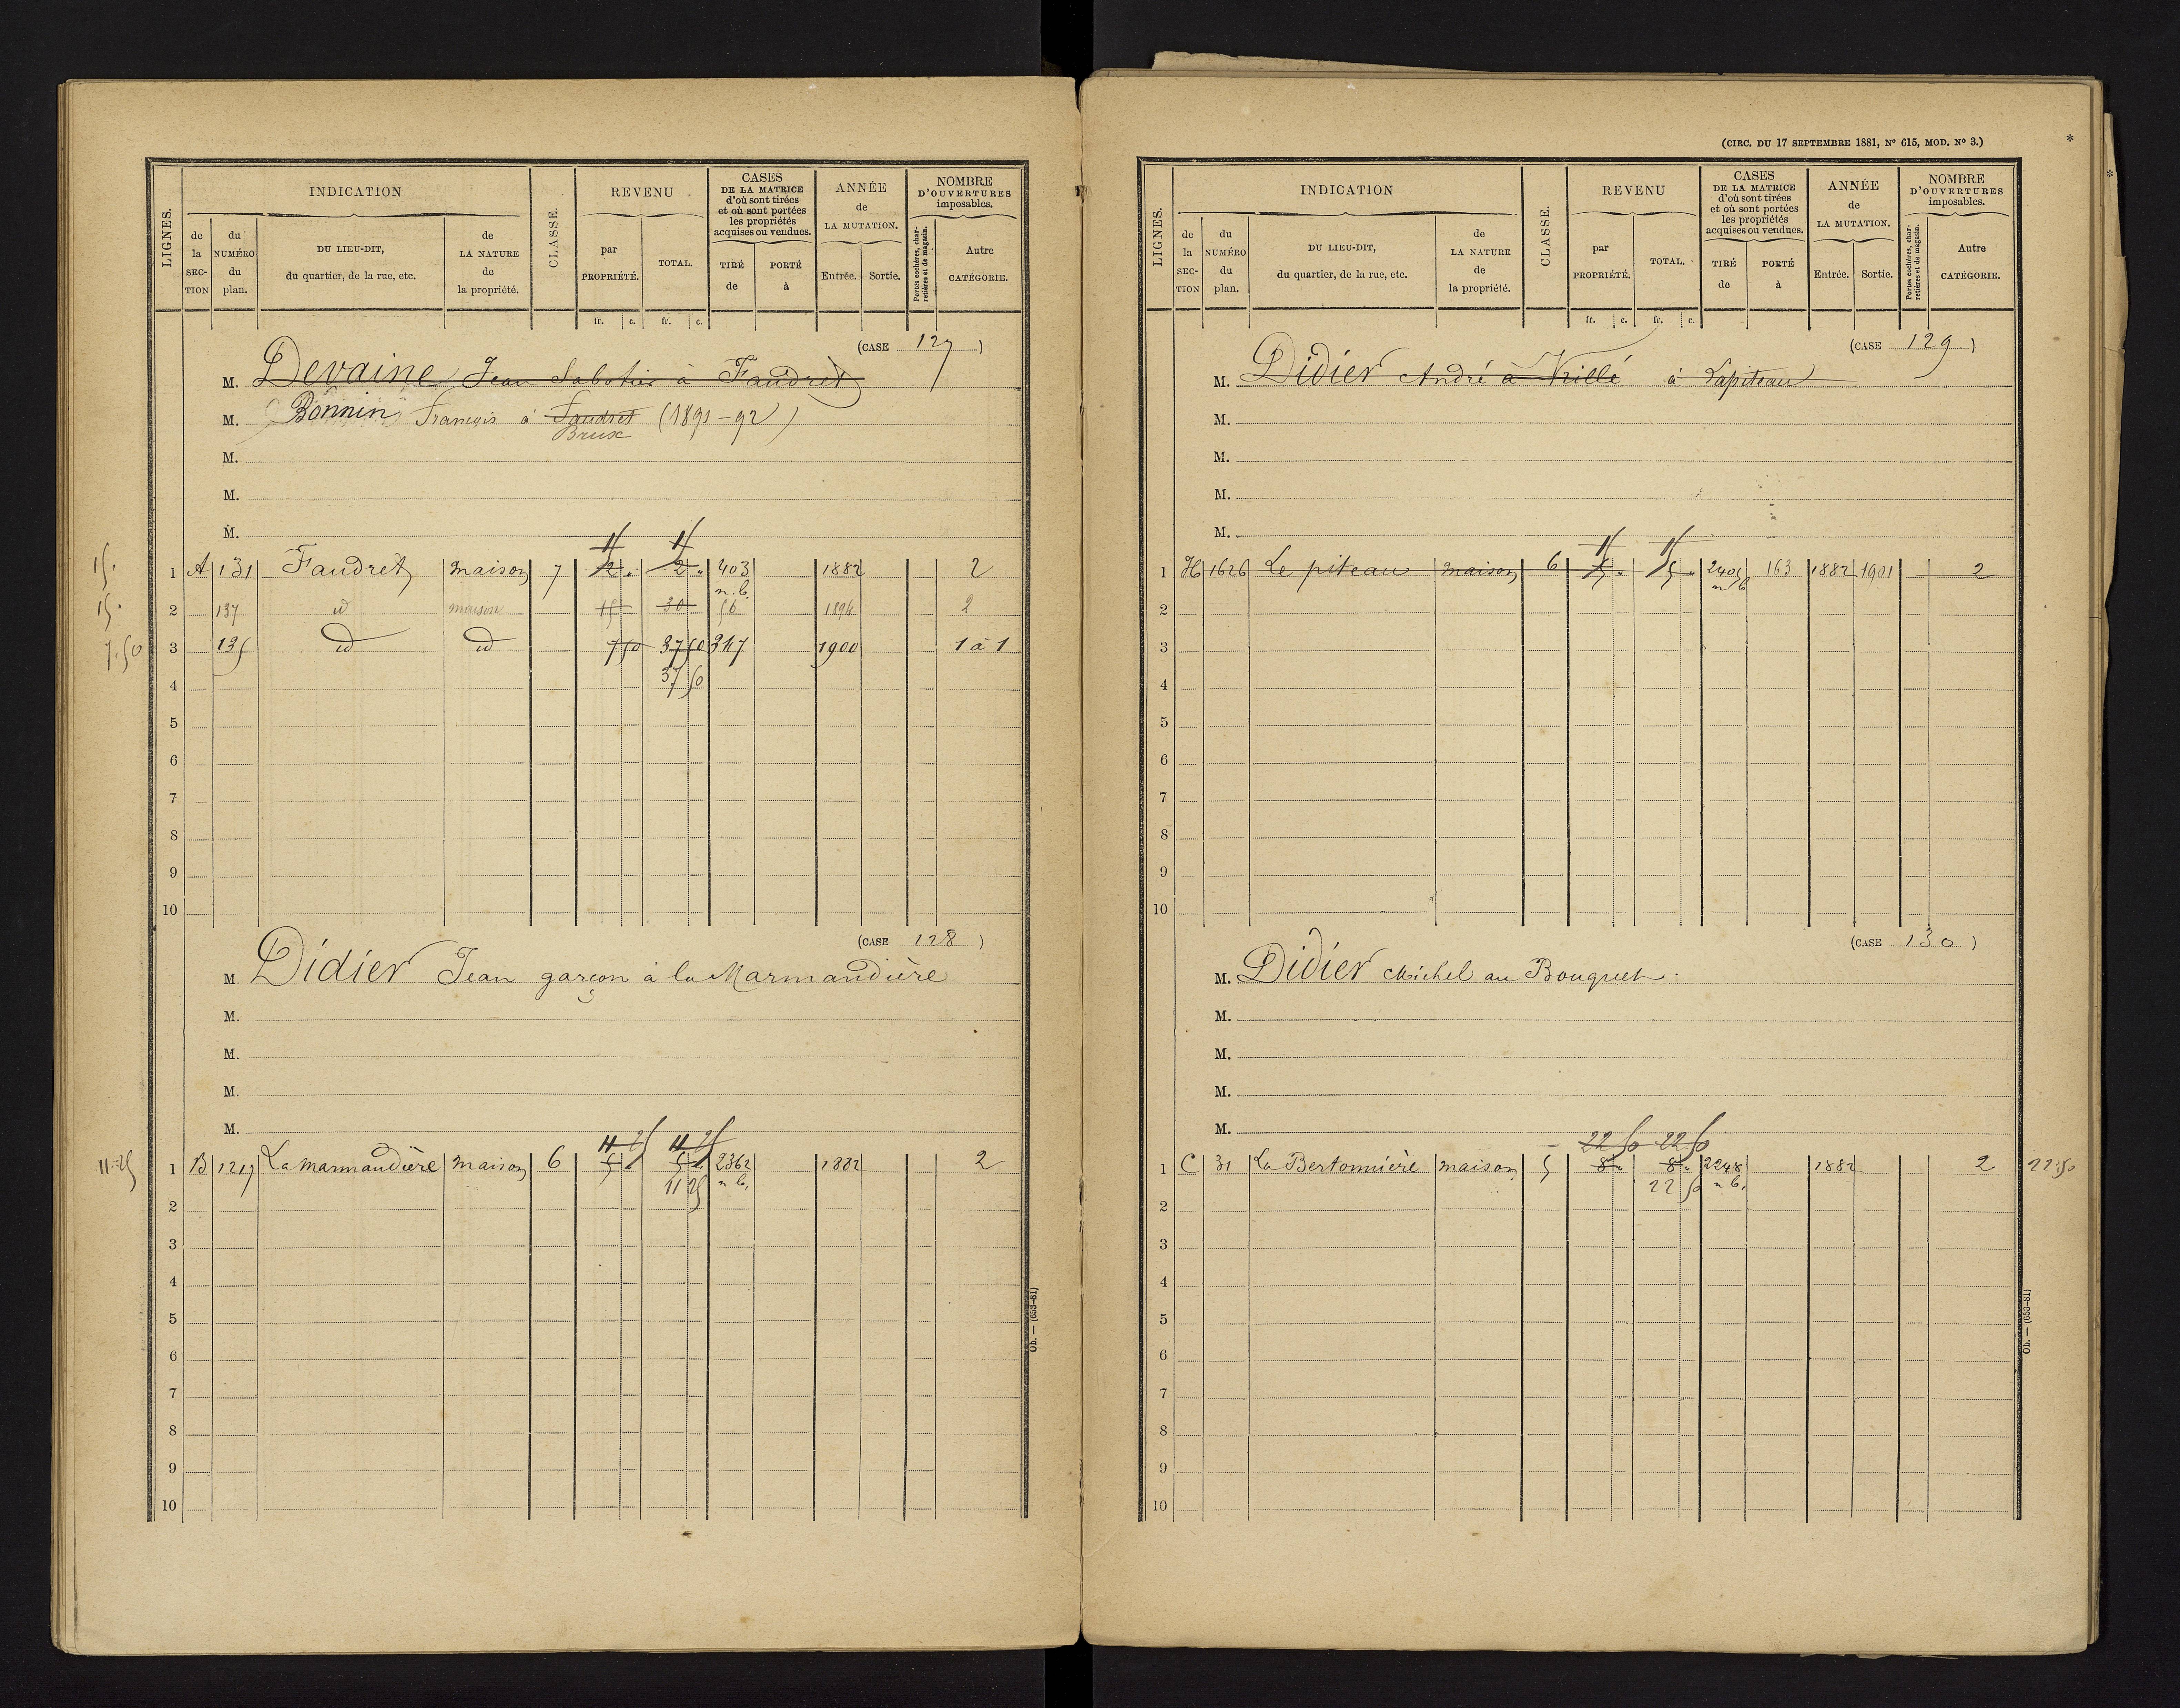 LIGNES.
INDICATION
de la SECTION
du NUMÉRO du plan.
DU LIEU-DIT, du quartier, de la rue, etc.
de LA NATURE de la propriété.
CLASSE.
REVENU
par PROPRIÉTÉ.
TOTAL.
CASES DE LA MATRICE d'où sont tirées et où sont portées les propriétés acquises ou vendues.
TIRÉ de
PORTÉ à
ANNÉE de LA MUTATION.
Entrée.
Sortie.
NOMBRE D'OUVERTURES imposables.
Portes cochères, charretières et de magasin.
Autre CATÉGORIE.
fr. c. fr. c.
(CASE 127)
M. Devaine Jean Sabotier à Faudret
M. Bonnin François à Faudret (1891-92)
Brux
M.
M.
M.
15 15
15. 1 A 131 Faudret maison 7 2 " 2 " 403 1882 2
n.b.
15. 2 137 id maison 15 30 56 1894 2
7.50 3 135 id id 7 50 37 50 317 1900 1 à 1
4 37 50
5
6
7
8
9
10
(CASE 128)
M. Didier Jean garçon à la Marmandière
M.
M.
M.
M.
11 25 11 25
11.25 1 B 1217 La marmandière maison 6 5 " 5 " 2362 1882 2
11 25 n b.
2
3
4
5
6
7
8
9
10
Ob. — (653-81)
(CIRC. DU 17 SEPTEMBRE 1881, N° 615, MOD. N° 3.)
*
LIGNES.
INDICATION
de la SECTION
du NUMÉRO du plan.
DU LIEU-DIT, du quartier, de la rue, etc.
de LA NATURE de la propriété.
CLASSE.
REVENU
par PROPRIÉTÉ.
TOTAL.
CASES DE LA MATRICE d'où sont tirées et où sont portées les propriétés acquises ou vendues.
TIRÉ de
PORTÉ à
ANNÉE de LA MUTATION.
Entrée.
Sortie.
NOMBRE D'OUVERTURES imposables.
Portes cochères, charretières et de magasin.
Autre CATÉGORIE.
fr. c. fr. c.
(CASE 129)
M. Didier André à Vrillé à Lapiteau
M.
M.
M.
M.
15 15
1 H 1626 Le piteau maison 6 5 " 5 " 2401 163 1882 1901 2
n b
2
3
4
5
6
7
8
9
10
(CASE 130)
M. Didier Michel au Bouquet.
M.
M.
M.
M.
22 50 22 50
1 C 31 La Bertonnière maison 5 8 " 8 " 2248 1882 2 22.50
22 50 n b.
2
3
4
5
6
7
8
9
10
Ob. — (653-81)